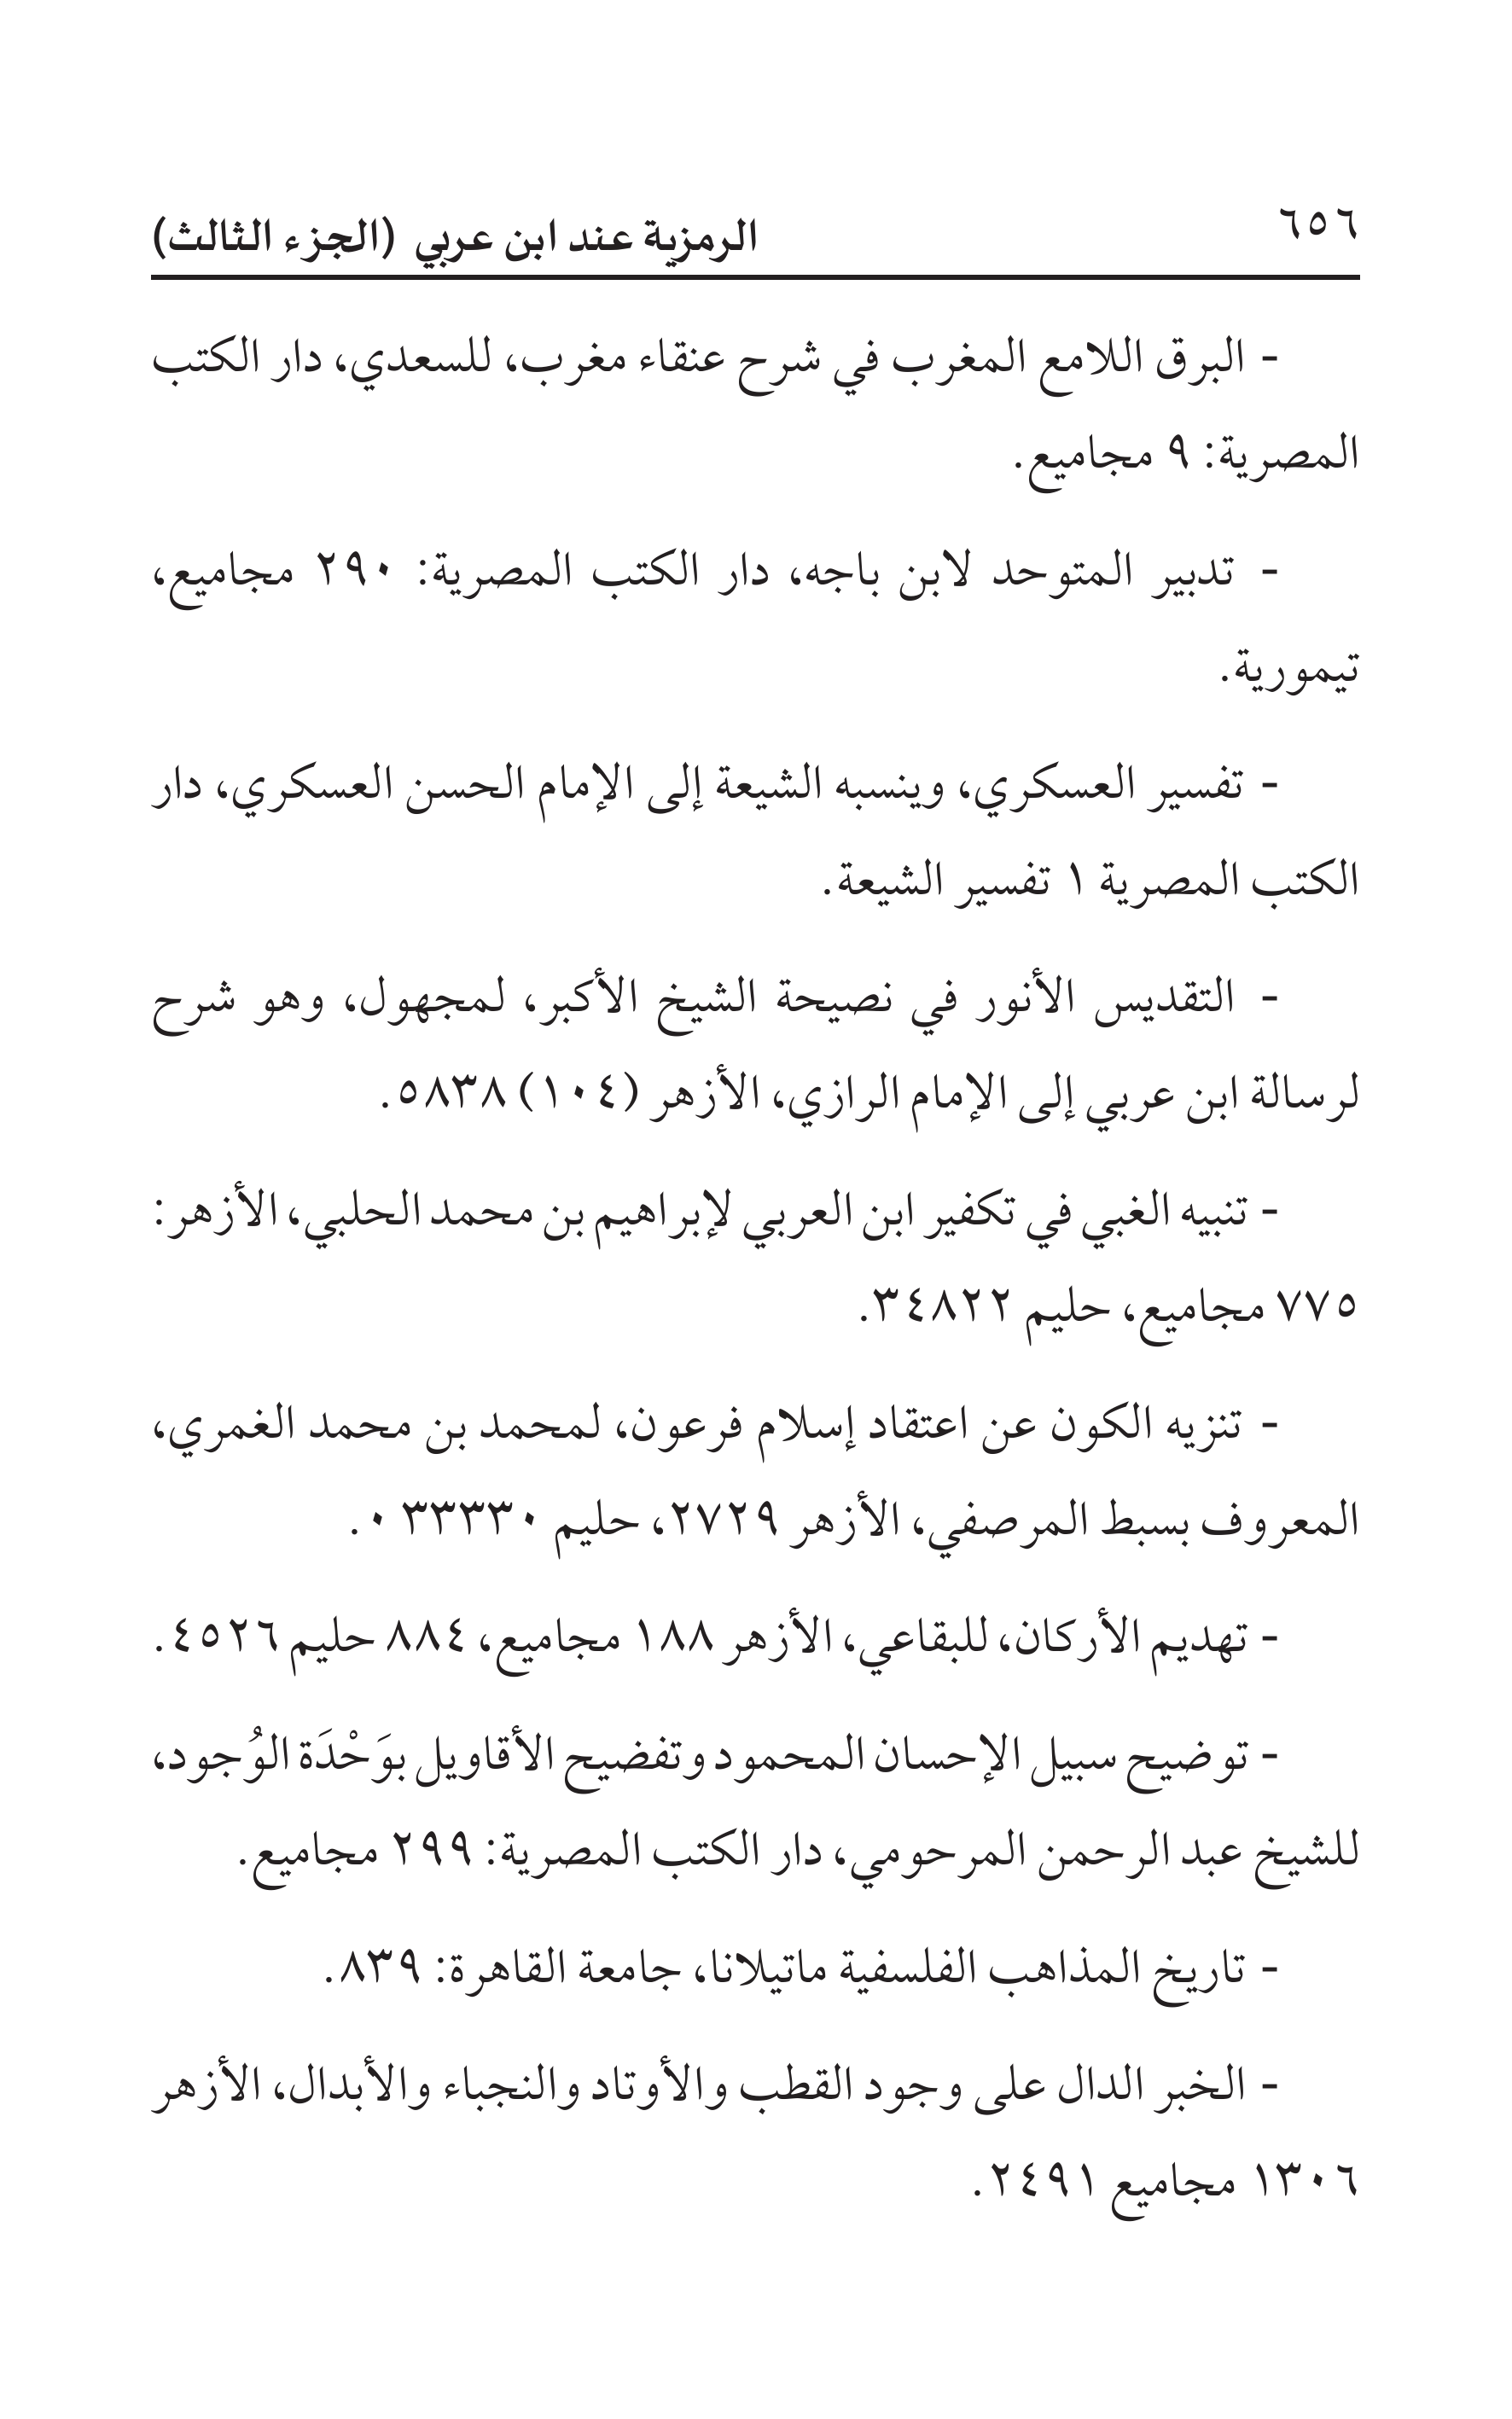 ٦٥٦
الرمزية عند ابن عربي (الجزء الثالث)
- البرق اللامع المغرب في شرح عنقاء مغرب، للسعدي، دار الكتب
المصرية: ٩ مجاميع.
- تدبير المتوحد لابن باجه، دار الكتب المصرية: ٢٩٠ مجاميع،
تيمورية.
- تفسير العسكري، وينسبه الشيعة إلى الإمام الحسن العسكري، دار
الكتب المصرية ١ تفسير الشيعة.
- التقديس الأنور في نصيحة الشيخ الأكبر، لمجهول، وهو شرح
لرسالة ابن عربي إلى الإمام الرازي، الأزهر (١٠٤) ٥٨٣٨.
- تنبيه الغبي في تكفير ابن العربي لإبراهيم بن محمد الحلبي، الأزهر:
٧٧٥ مجاميع، حليم ٣٤٨٢٢.
- تنزيه الكون عن اعتقاد إسلام فرعون، لمحمد بن محمد الغمري،
المعروف بسبط المرصفي، الأزهر ٢٧٢٩، حليم ٣٣٣٣٠ ٠.
- تهديم الأركان، للبقاعي، الأزهر ١٨٨ مجاميع، ٨٨٤ حليم ٤٥٢٦.
- توضيح سبيل الإحسان المحمود وتفضيح الأقاويل بوَحْدَة الوُجود،
للشيخ عبد الرحمن المرحومي، دار الكتب المصرية: ٢٩٩ مجاميع.
- تاريخ المذاهب الفلسفية ماتيلانا، جامعة القاهرة: ٨٣٩.
- الخبر الدال على وجود القطب والأوتاد والنجباء والأبدال، الأزهر
١٣٠٦ مجاميع ٢٤٩١.